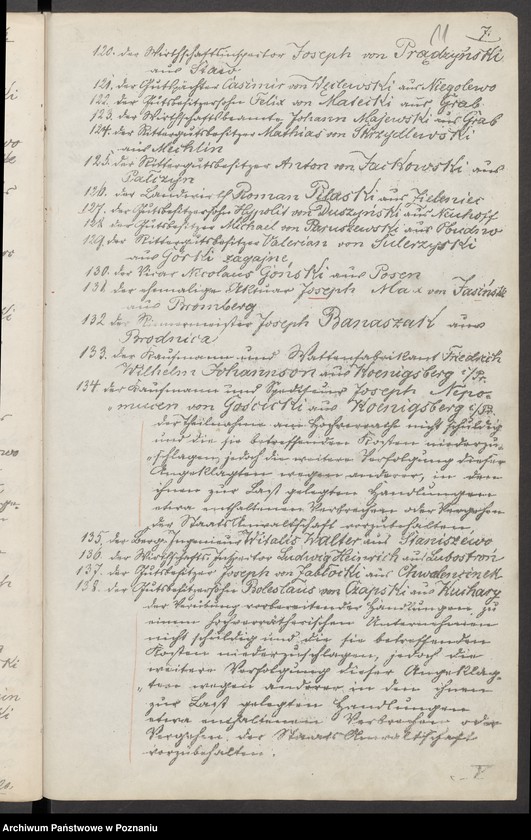 11 7.
120. der Wirthschaftsinspector Joseph von Prądzyński
aus Stawo
121. der Gutspächter Casimir von Węclewski aus Niegolewo
122. der Gutsbesitzersohn Felix von Matecki aus Grab
123. der Wirthschaftsbeamte Johann Majewski aus Grab
124. der Rittergutsbesitzer Mathias von Skrzydlewski
aus Mechlin
125. der Rittergutsbesitzer Anton von Jackowski aus
Palczyn
126. der Landwirth Roman Pilaski aus Zieleniec
127. der Gutsbesitzersohn Hypolit von Duszyński aus Neuhoff
128. der Gutsbesitzer Michael von Paruszewski aus Pudno
129. der Rittergutsbesitzer Valerian von Sulerzyski
aus Górki zagajne
130. der Vicar Nicolaus Goński aus Posen
131. der ehemalige Aktuar Joseph Max von Jasiński
aus Bromberg
132 der Joseph Banaszak aus
Brodnica
133. der Kaufmann und Wattenfabrikant Friedrich
Wilhelm Johannson aus Koenigsberg i/Pr.
134 der Kaufmann und Spediteur Joseph Nepo-
mucen von Gościcki aus Koenigsberg i/Pr.
der Theilnahme am Hochverrath nicht schuldig
und die sie betreffenden Kosten niederzu-
schlagen, jedoch die weitere Verfolgung dieser
Angeklagten wegen anderer, in den
ihnen zur Last gelegten Handlungen
etwa enthaltenen Verbrechen oder Vergehen
der Staats Anwaltschaft vorzubehalten,
135. der Berg-Ingenieur Witalis Walter aus Staniszewo
136. der Wirthschafts Inspector Ludwig Heinrich aus Lubostron
137. der Gutsbesitzer Joseph von Jabłocki aus Chwalencinek
138. der Gutsbesitzersohn Boleslaus von Czapski aus Kuchary
der Verübung vorbereitender Handlungen zu
einem hochverrätherischen Unternehmen
nicht schuldig und die sie betreffenden
Kosten niederzuschlagen, jedoch die
weitere Verfolgung dieser Angeklag-
ten wegen anderer in den ihnen
zur Last gelegten Handlungen
etwa enthaltenen Verbrechen oder
Vergehen, der Staats Anwaltschaft
vorzubehalten.
V
Archiwum Państwowe w Poznaniu